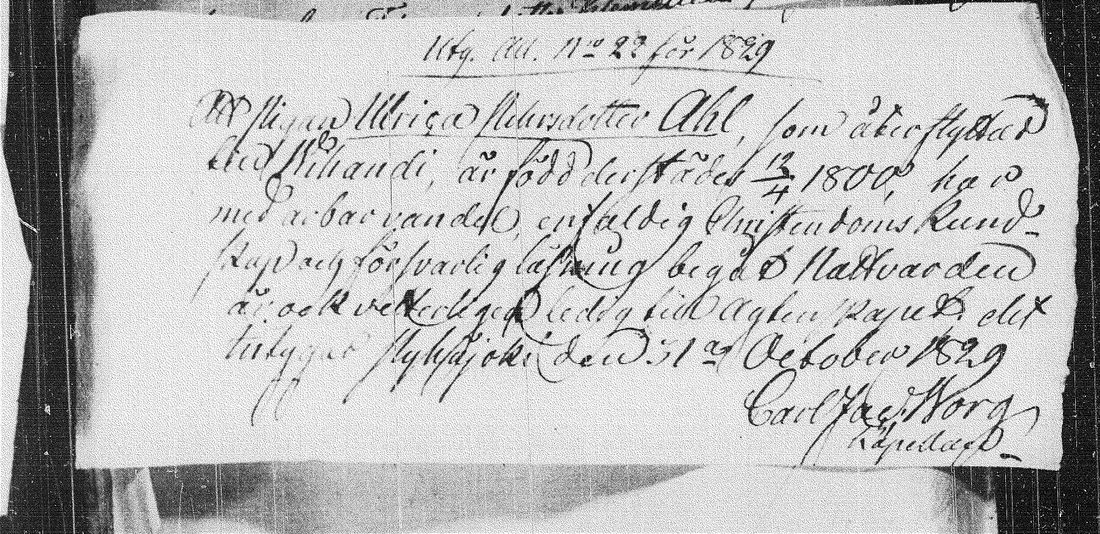 Utg. Att. No 22 för 1829
Att Pigan Ulrica Pehrsdotter Ahl, som återflyttar
till Wihandi, är född derstädes 12/4 1800, har
med ärbar vandel, enfaldig Christendoms Kund-
skap och försvarlig läsning begåt Nattvarden
är ock vetterligen ledig till Agtenskapet; det
intygar Pyhäjoki den 31 October 1829
Carl Jac. Worg
Capellan